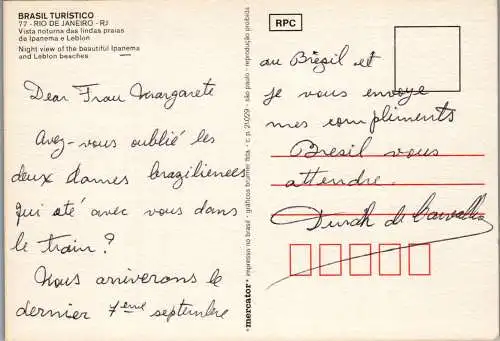 BRASIL TURÍSTICO
77 - RIO DE JANEIRO - RJ
Vista noturna das lindas praias
de Ipanema e Leblon
Night view of the beautiful Ipanema
and Leblon beaches
Dear Frau Margarete
Avez-vous oublié les
deux dames braziliènees
qui até avec vous dans
le train?
Nous arriverons le
dernier 7ème septembre
mercator · impresso no brasil · gráficos brunner ltda. · c. p. 20229 · são paulo · reprodução proibida
RPC
au Brésil et
je vous envoye
mes compliments
Bresil vous
attendre.
de Carvalho